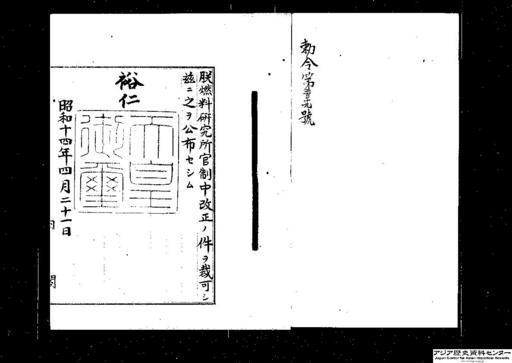 勅令第號
朕燃料研究所官制中改正ノ件ヲ裁可シ
茲ニ之ヲ公布セシム
裕仁
天皇
御璽
昭和十四年四月二十一日
内閣
アジア歴史資料センター
Japan Center for Asian Historical Records